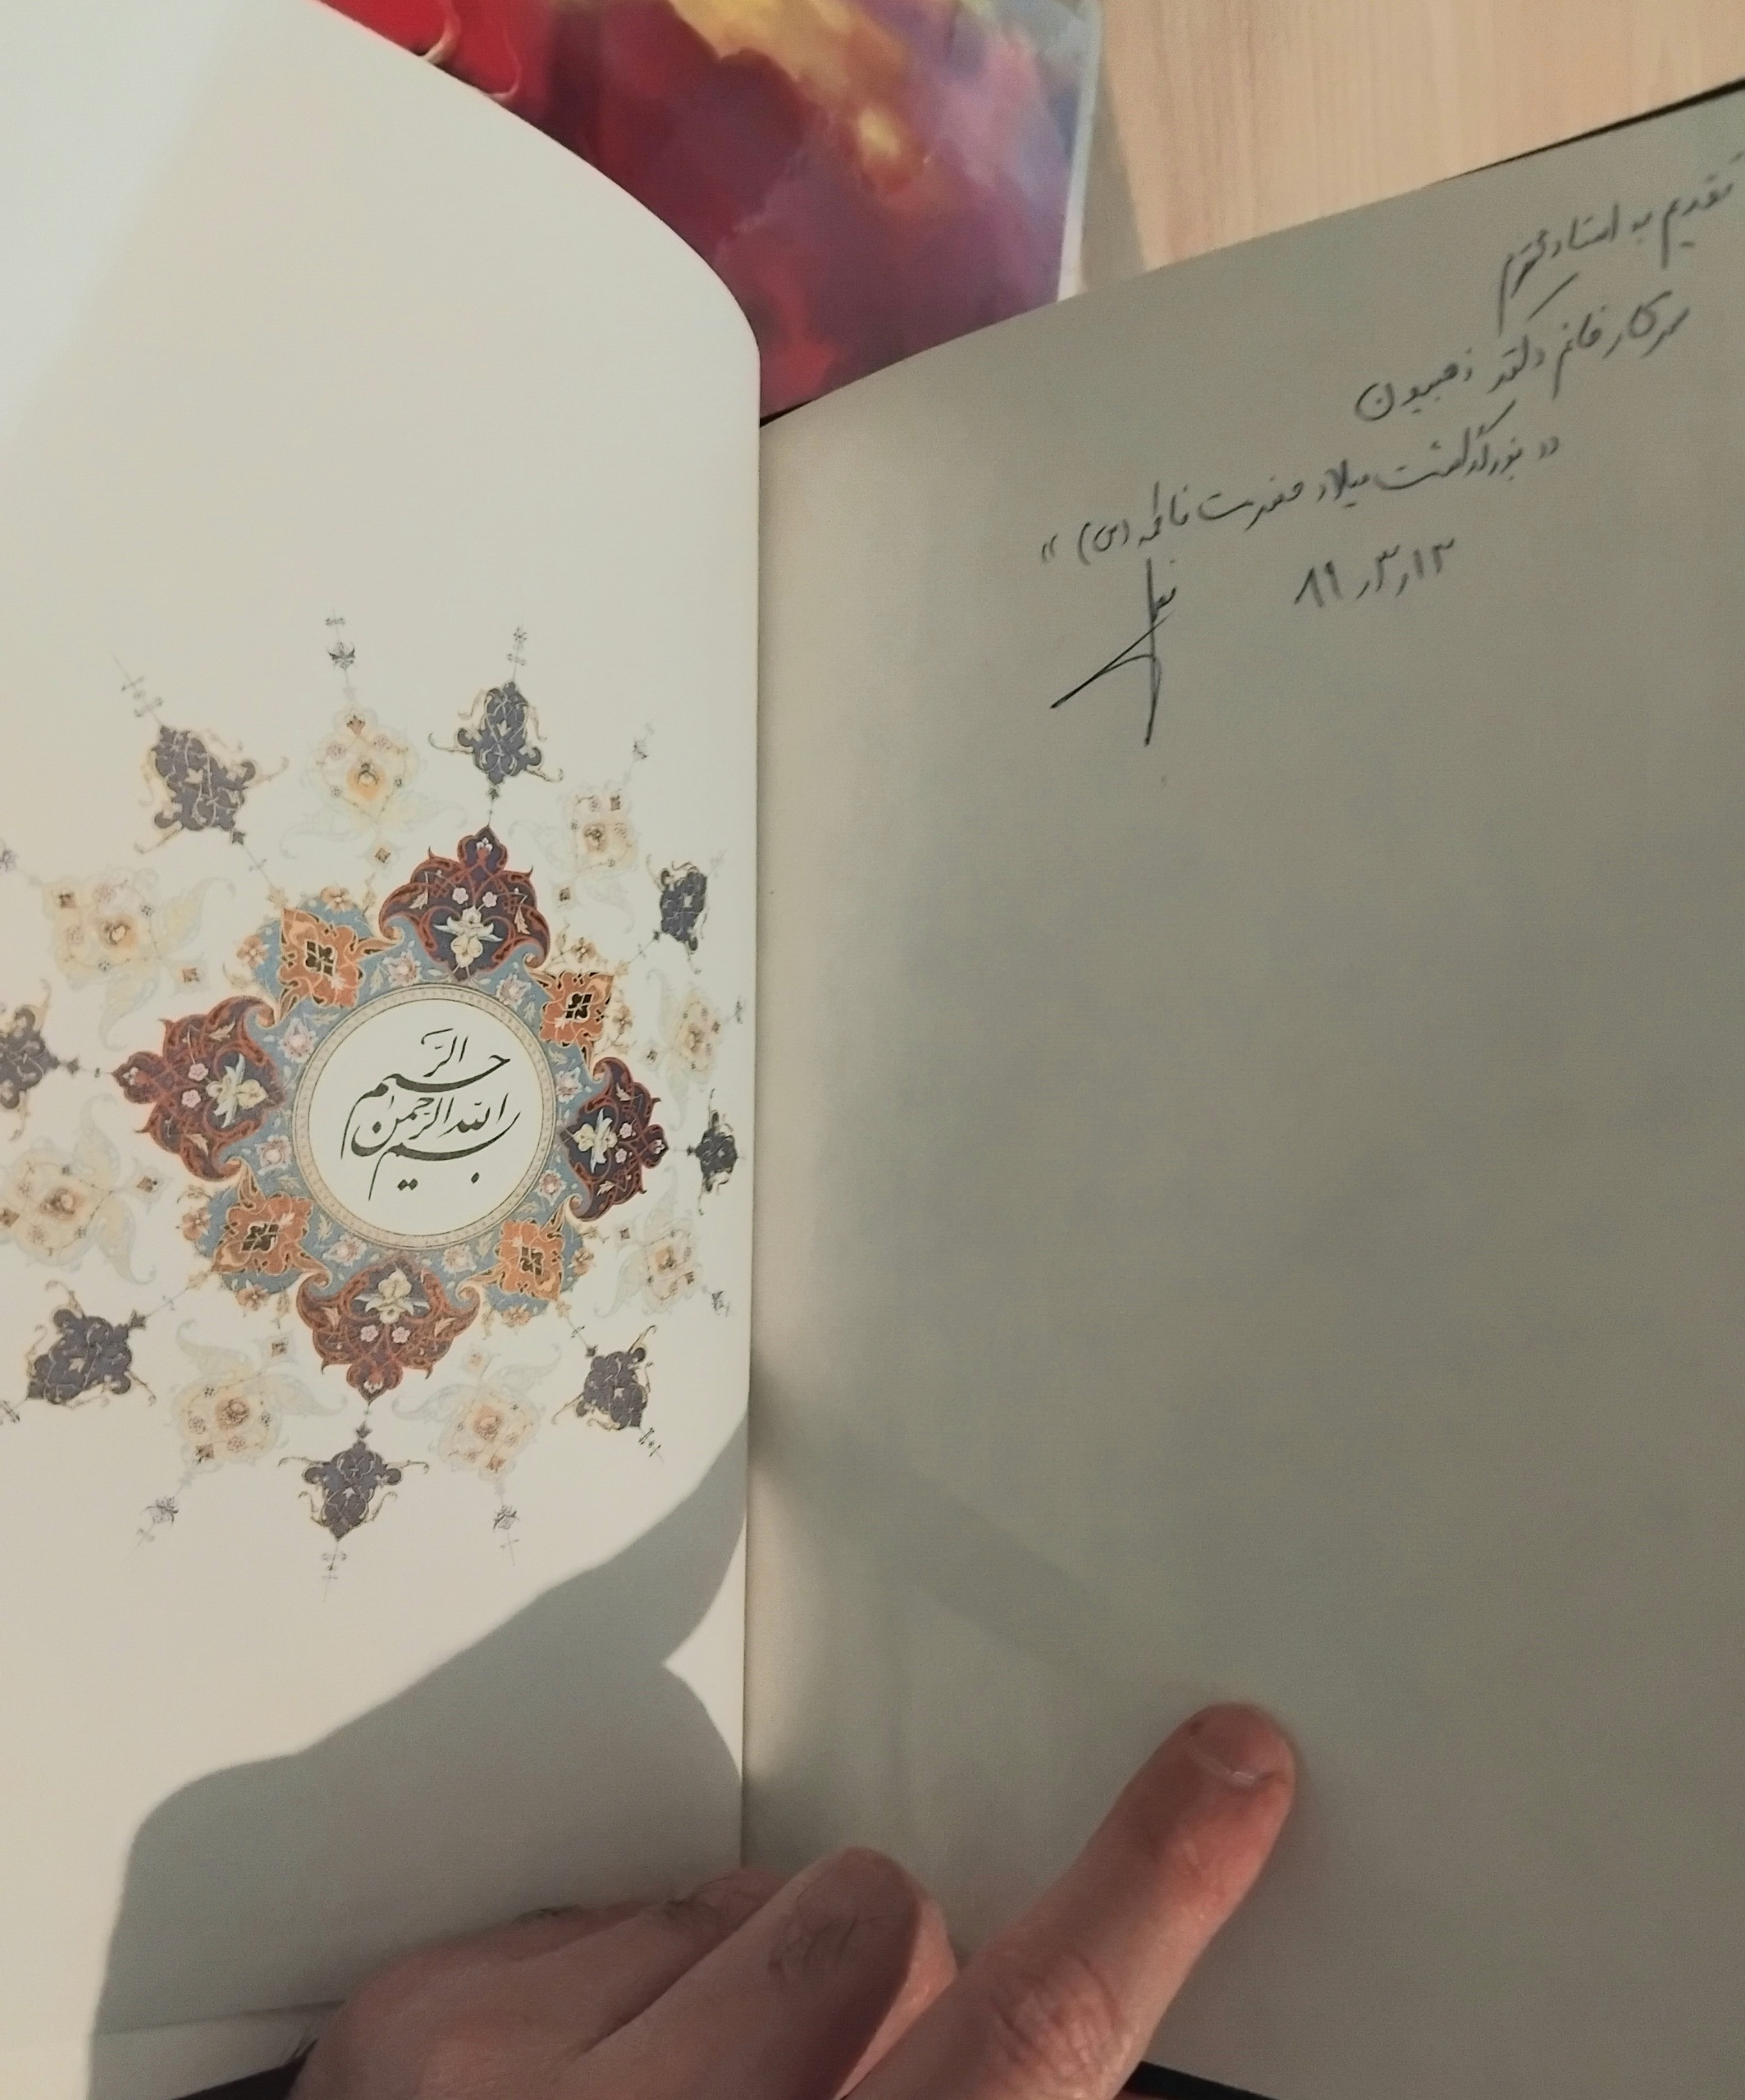 تقدیم به استاد محترم
سرکار خانم دکتر ذهبیون
در بزرگداشت میلاد حضرت فاطمه (س) "
۸۹٫۳٫۱۳
بسم الله الرحمن الرحیم